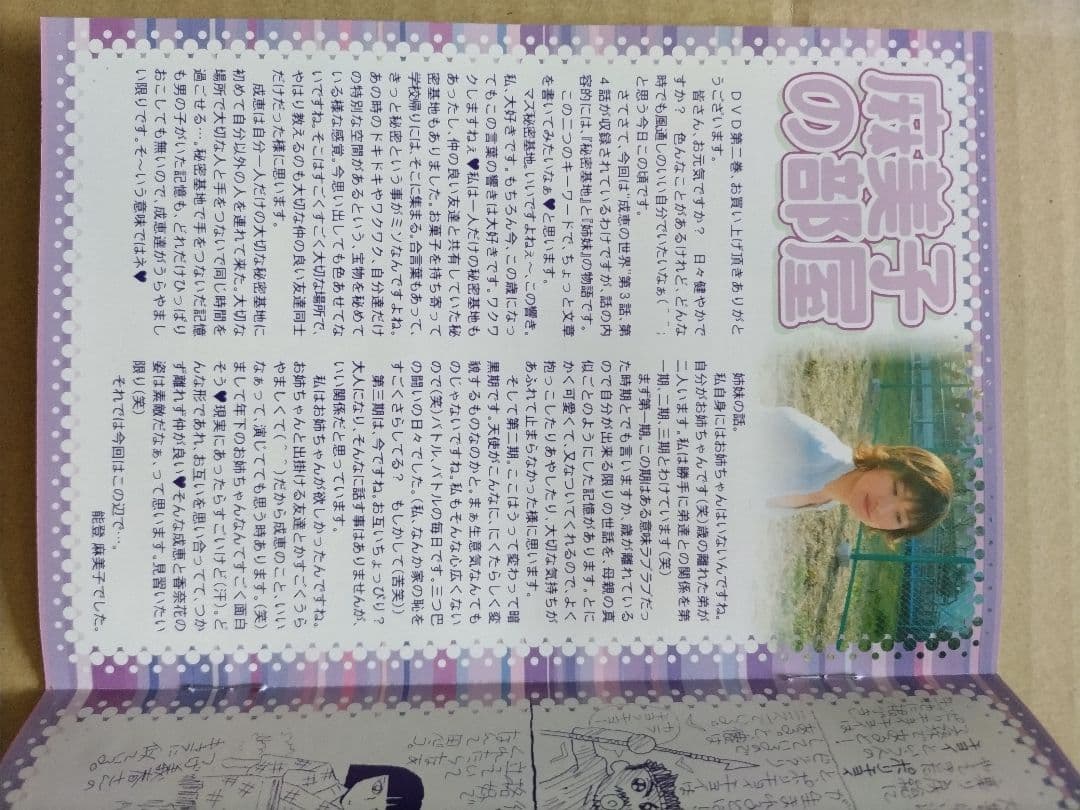 麻美子
の部屋
DVD第二巻、お買い上げ頂きありがと
うございます。
皆さん、お元気ですか? 日々健やかで
すか? 色んなことがあるけれど、どんな
時でも風通しのいい自分でいたいなぁ(⌒⌒;
と思う今日この頃です。
さてさて、今回は“成恵の世界”第3話、第
4話が収録されているわけですが、話の内
容的には、『秘密基地』と『姉妹』の物語です。
この二つのキーワードで、ちょっと文章
を書いてみたいなぁ♥と思います。
マズ秘密基地。いいですよねぇ〜、この響き。
私、大好きです。もちろん今、この歳になっ
てもこの言葉の響きは大好きです。ワクワ
クしますねぇ♥私は一人だけの秘密基地も
あったし、仲の良い友達と共有していた秘
密基地もありました。お菓子を持ち寄って
学校帰りには、そこに集まる。合言葉もあって、
きっと秘密という事がミソなんですよね。
あの時のドキドキやワクワク、自分達だけ
の特別な空間があるという、宝物を秘めて
いる様な感覚。今思い出しても色あせてな
いですね。そこはすごくすごく大切な場所で、
やはり教えるのも大切な仲の良い友達同士
だけだった様に思います。
成恵は自分一人だけの大切な秘密基地に
初めて自分以外の人を連れて来た。大切な
場所で大切な人と手をつないで同じ時間を
過ごせる…。秘密基地で手をつないだ記憶
も男の子がいた記憶も、どれだけひっぱり
おこしても無いので、成恵達がうらやまし
い限りです。そ〜いう意味ではネ♥
姉妹の話。
私自身にはお姉ちゃんはいないんですね。
自分がお姉ちゃんです(笑)歳の離れた弟が
二人います。私は勝手に弟達との関係を第
一期、二期、三期とわけています(笑)
まず第一期。この期はある意味ラブラブだっ
た時期とでも言いますか、歳が離れている
ので自分が出来る限りの世話を、母親の真
似ごとのようにした記憶があります。とに
かく可愛くて、又なついてくれるので、よく
抱っこしたりあやしたり、大切な気持ちが
あふれて止まらなかった様に思います。
そして第二期。ここはうって変わって暗
黒期です。天使がこんなに、にくたらしく変
貌するものなのかと。まぁ生意気なんても
のじゃないですね。私もそんな心広くない
ので(笑)バトル、バトルの毎日です。三つ巴
の闘いの日々でした。(私、なんか家の恥を
すごくさらしてる? もしかして(苦笑))
第三期は、今ですね。お互いちょっぴり?
大人になり、そんなに話す事はありませんが、
いい関係だと思っています。
私はお姉ちゃんが欲しかったんですね。
お姉ちゃんと出掛ける友達とかすごくうら
やましくて(⌒⌒;)だから成恵のこと、いい
なぁって、演じてても思う時あります。(笑)
まして年下のお姉ちゃんなんてすごく面白
そう♥現実にあったらすごいけど(汗)。ど
んな形であれ、お互いを思い合ってて、つか
ず離れず仲が良い♥そんな成恵と香奈花の
姿は素敵だなぁ、って思います。見習いたい
限り(笑)
それでは今回はこの辺で…。
能登 麻美子でした。